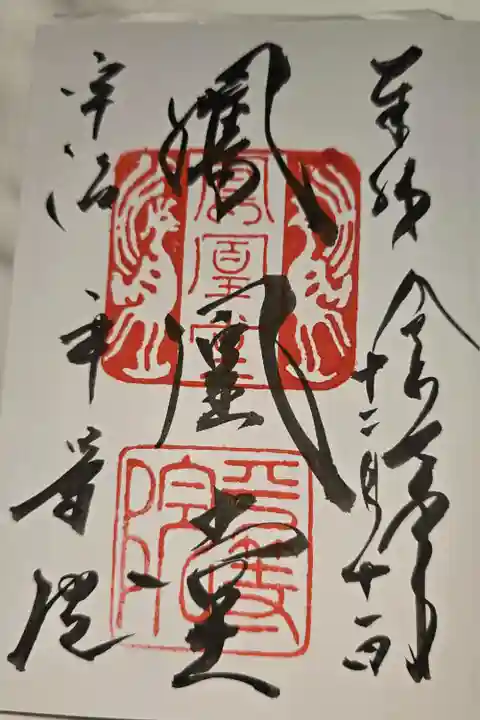 奉拝 令和 年
十二月十一日
鳳凰堂
鳳凰堂
平等院
宇治 平等院